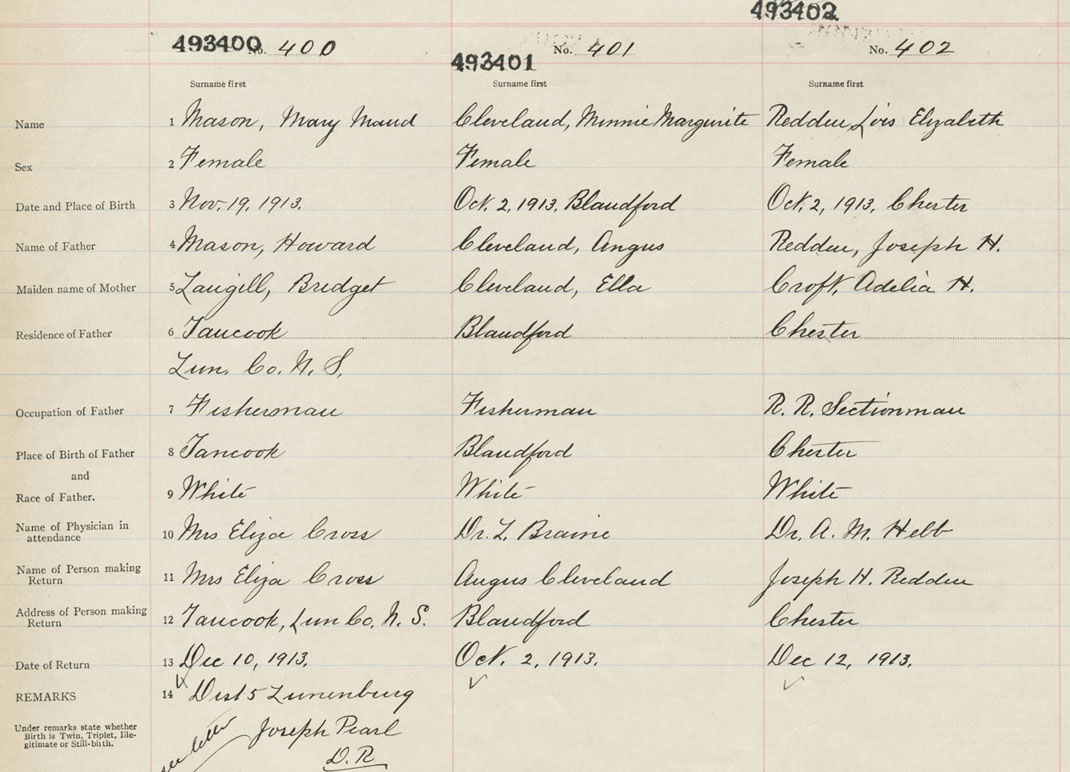 493402
493400 No. 400
493401 No. 401
No. 402
Surname first Surname first Surname first
Name 1 Mason, Mary Maud Cleveland, Minnie Margurite Redden, Lois Elizabeth
Sex 2 Female Female Female
Date and Place of Birth 3 Nov. 19, 1913. Oct. 2, 1913, Blandford Oct. 2, 1913, Chester
Name of Father 4 Mason, Howard Cleveland, Angus Redden, Joseph H.
Maiden name of Mother 5 Langill, Bridget Cleveland, Ella Croft, Adelia H.
Residence of Father 6 Tancook Blandford Chester
Lun. Co. N. S.
Occupation of Father 7 Fisherman Fisherman R. R. Sectionman
Place of Birth of Father 8 Tancook Blandford Chester
and
Race of Father. 9 White White White
Name of Physician in attendance 10 Mrs Eliza Cross Dr. L. Braine Dr. A. M. Hebb
Name of Person making Return 11 Mrs Eliza Cross Angus Cleveland Joseph H. Redden
Address of Person making Return 12 Tancook, Lun Co, N. S. Blandford Chester
Date of Return 13 Dec 10, 1913. Oct. 2, 1913. Dec 12, 1913.
REMARKS 14 Dist 5 Lunenburg
Under remarks state whether
Birth is Twin, Triplet, Ille-
gitimate or Still-birth.
Joseph Pearl
D. R
see letter